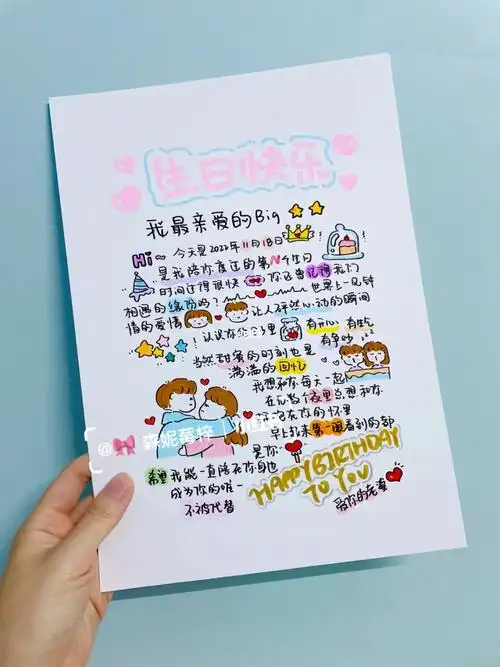 生日快乐
我最亲爱的Big
Hi~ 今天是2022年11月18日
是我陪你度过的第N个生日
时间过得很快 你还会记得我们
相遇的缘份吗? 世界上一见钟
情的爱情 让人怦然心动的瞬间
! 认识你的 里 有开心 有生气
有争吵
当然甜蜜的时刻也是
满满的回忆
我想和你每天一起
在无数个夜里总想和你
在你的怀里
早上起来第一眼看到的都
是你
@ 森妮莓梓 小红书
希望我能一直陪在你身边
成为你的唯一
不被代替
HAPPY BIRTHDAY
TO YOU
爱你的老婆